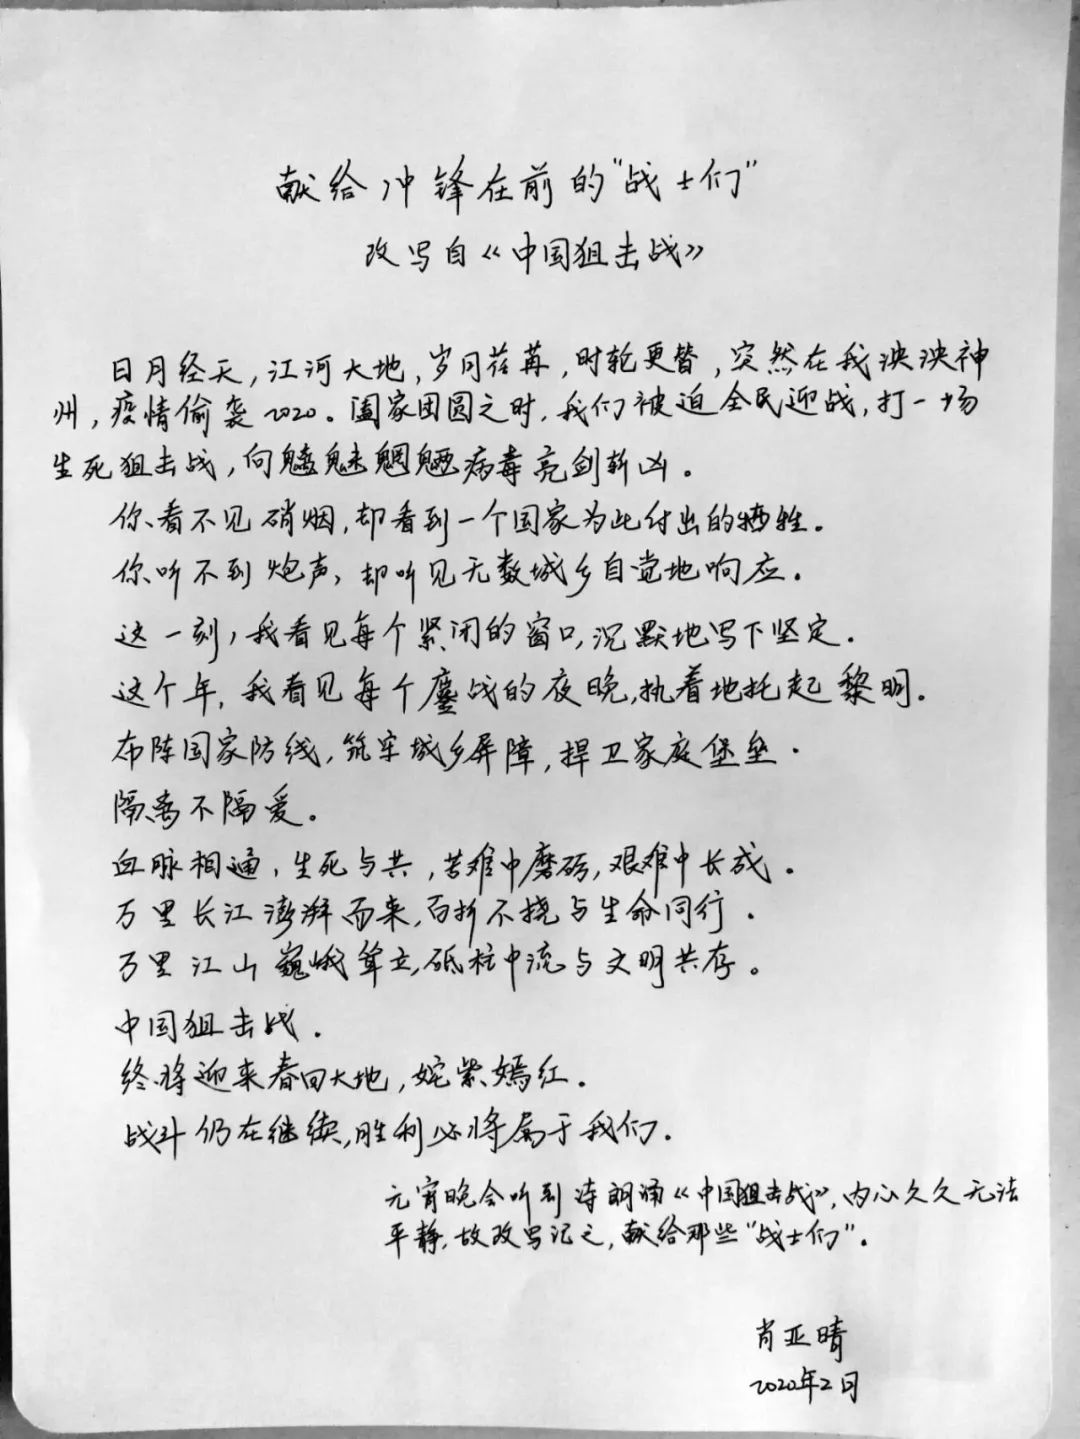 献给冲锋在前的“战士们”
改写自《中国狙击战》
日月经天，江河大地，岁月荏苒，时轮更替，突然在我泱泱神
州，疫情偷袭2020。阖家团圆之时，我们被迫全民迎战，打一场
生死狙击战，向魑魅魍魉病毒亮剑斩凶。
你看不见硝烟，却看到一个国家为此付出的牺牲。
你听不到炮声，却听见无数城乡自觉地响应。
这一刻，我看见每个紧闭的窗口，沉默地写下坚定．
这个年，我看见每个鏖战的夜晚，执着地托起黎明．
布阵国家防线，筑牢城乡屏障，捍卫家庭堡垒．
隔离不隔爱。
血脉相通，生死与共，苦难中磨砺，艰难中长成．
万里长江澎湃而来，百折不挠与生命同行．
万里江山巍峨耸立，砥柱中流与文明共存。
中国狙击战．
终将迎来春回大地，姹紫嫣红．
战斗仍在继续，胜利必将属于我们．
元宵晚会听到诗朗诵《中国狙击战》，内心久久无法
平静，故改写记之，献给那些“战士们”。
肖亚晴
2020年2月